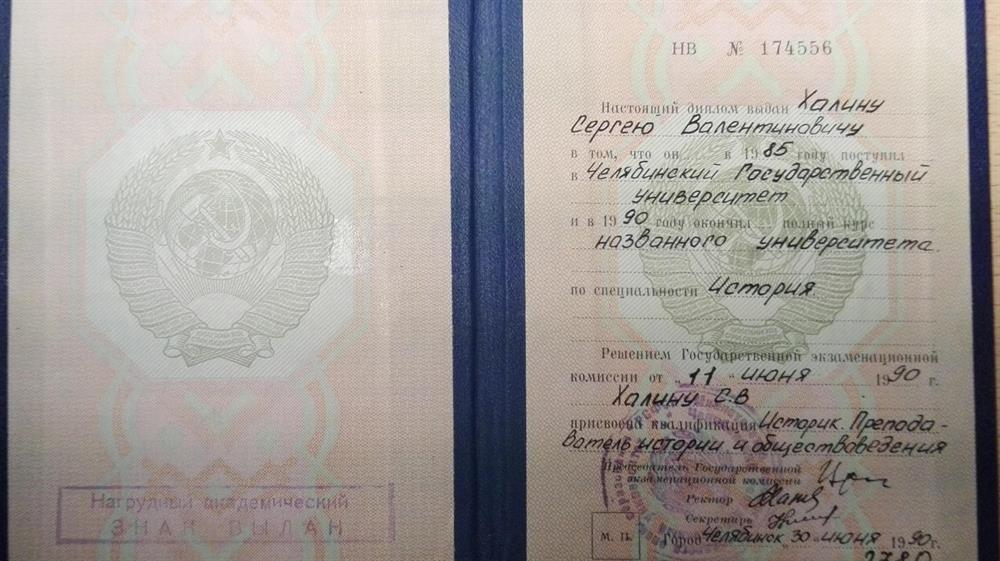 Нагрудный академический
ЗНАК ВЫДАН
НВ № 174556
Настоящий диплом выдан Халину
Сергею Валентиновичу
в том, что он в 1985 году поступил
в Челябинский Государственный
университет
и в 1990 году окончил полный курс
названного университета.
по специальности История
Решением Государственной экзаменационной
комиссии от „11“ июня 1990 г.
Халину С.В
присвоена квалификация Историк. Препода-
ватель истории и обществоведения
Председатель Государственной
экзаменационной комиссии
Ректор
Секретарь
М. П. Город Челябинск „30“ июня 1990 г.